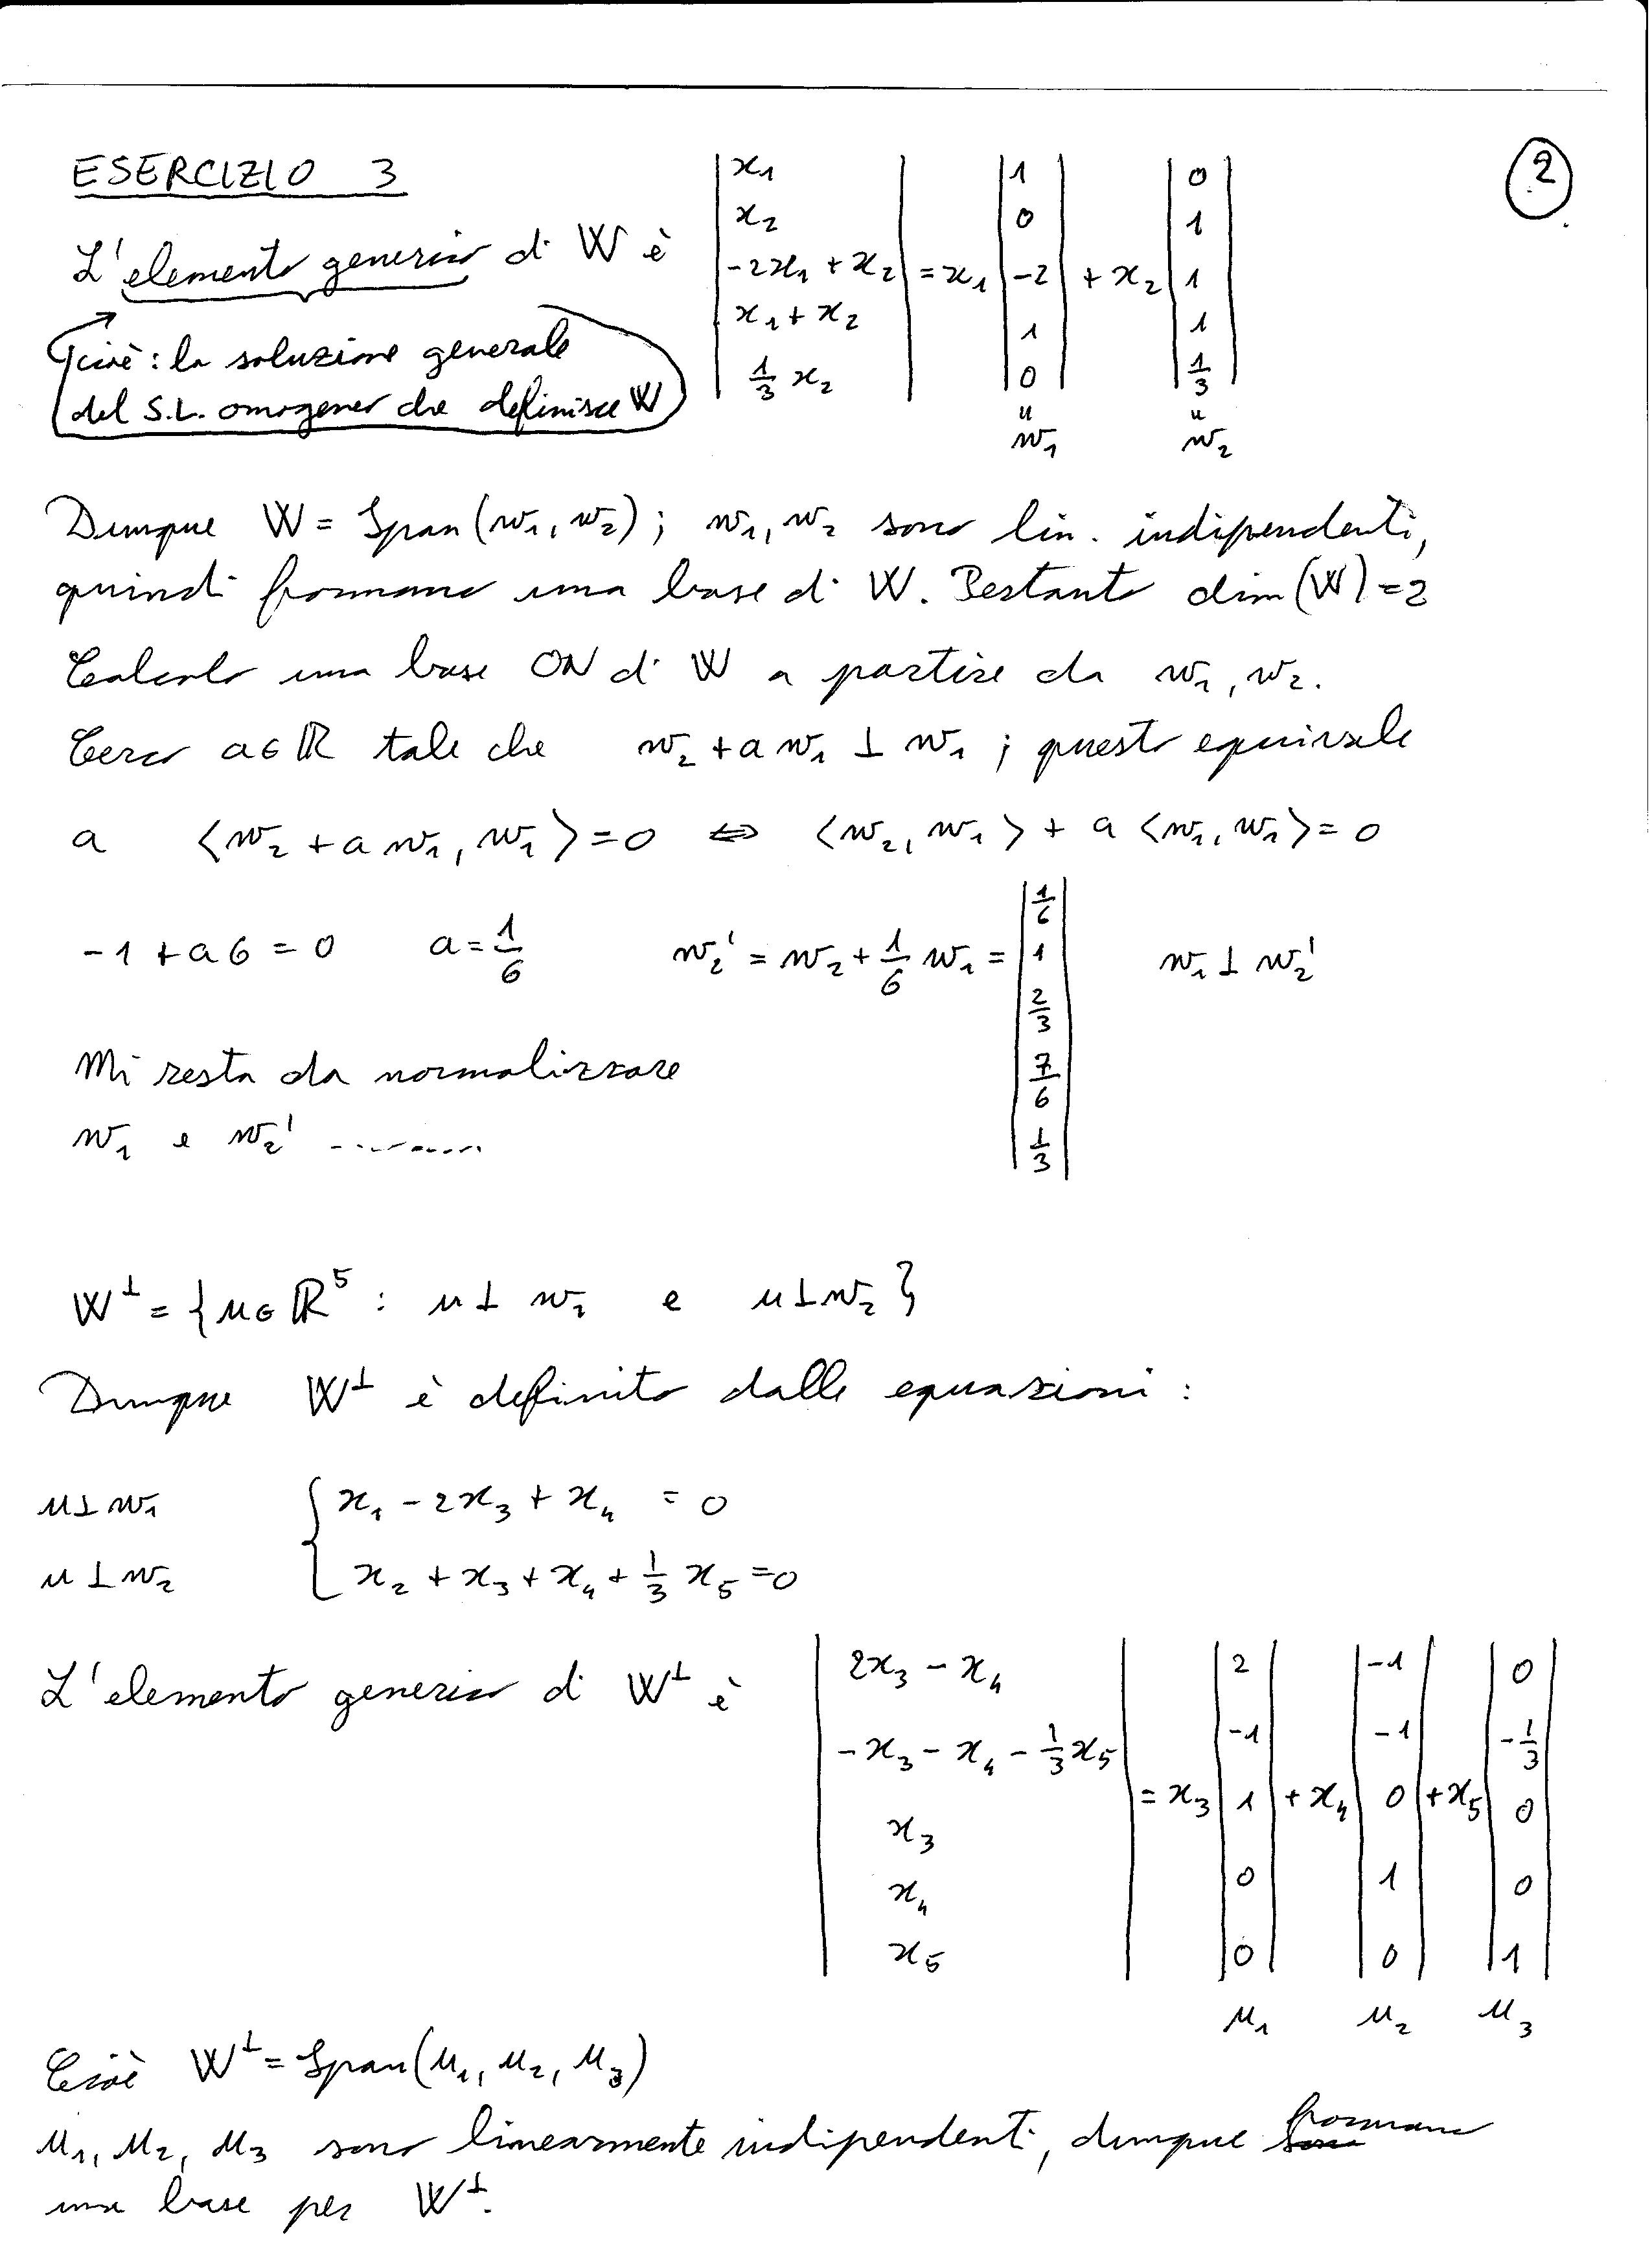 ESERCIZIO 3
2
L'elemento generico di W è | x₁ ; x₂ ; -2x₁ + x₂ ; x₁ + x₂ ; 1/3 x₂ | = x₁ | 1 ; 0 ; -2 ; 1 ; 0 | + x₂ | 0 ; 1 ; 1 ; 1 ; 1/3 |
cioè: la soluzione generale
del S.L. omogeneo che definisce W
" "
w₁ w₂
Dunque W = Span(w₁, w₂); w₁, w₂ sono lin. indipendenti,
quindi formano una base di W. Pertanto dim(W) = 2
Calcolo una base ON di W a partire da w₁, w₂.
Cerco a ∈ ℝ tale che w₂ + a w₁ ⊥ w₁ ; questo equivale
a ⟨w₂ + a w₁, w₁⟩ = 0 ⇔ ⟨w₂, w₁⟩ + a ⟨w₁, w₁⟩ = 0
-1 + a 6 = 0 a = 1/6 w₂' = w₂ + 1/6 w₁ = | 1/6 ; 1 ; 2/3 ; 7/6 ; 1/3 | w₁ ⊥ w₂'
Mi resta da normalizzare
w₁ e w₂' .........
W^⊥ = { u ∈ ℝ⁵ : u ⊥ w₁ e u ⊥ w₂ }
Dunque W^⊥ è definito dalle equazioni :
u ⊥ w₁ { x₁ - 2x₃ + x₄ = 0
u ⊥ w₂ x₂ + x₃ + x₄ + 1/3 x₅ = 0
L'elemento generico di W^⊥ è | 2x₃ - x₄ ; -x₃ - x₄ - 1/3 x₅ ; x₃ ; x₄ ; x₅ | = x₃ | 2 ; -1 ; 1 ; 0 ; 0 | + x₄ | -1 ; -1 ; 0 ; 1 ; 0 | + x₅ | 0 ; -1/3 ; 0 ; 0 ; 1 |
u₁ u₂ u₃
Cioè W^⊥ = Span(u₁, u₂, u₃)
u₁, u₂, u₃ sono linearmente indipendenti, dunque formano
una base per W^⊥.